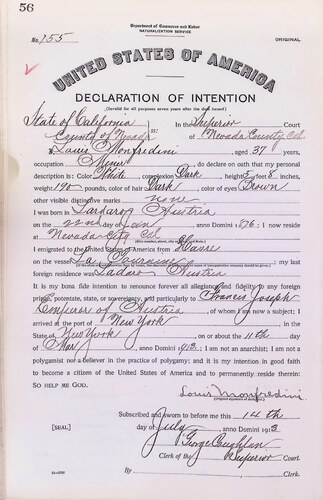 56
Department of Commerce and Labor
NATURALIZATION SERVICE
No. 155 ORIGINAL
UNITED STATES OF AMERICA
DECLARATION OF INTENTION
(Invalid for all purposes seven years after the date hereof)
State of California ss: In the Superior Court
County of Nevada of Nevada County, Cal
I, Louis Monfredini, aged 37 years,
occupation Miner, do declare on oath that my personal
description is: Color White, complexion Dark, height 5 feet 8 inches,
weight 190 pounds, color of hair Dark, color of eyes Brown
other visible distinctive marks none
I was born in Austria
on the day of Jan, anno Domini 1876; I now reside
at Nevada City Cal
I emigrated to the United States of America from Havre
on the vessel La Touraine; my last
foreign residence was Austria
It is my bona fide intention to renounce forever all allegiance and fidelity to any foreign
prince, potentate, state, or sovereignty, and particularly to Francis Joseph
Emperor of Austria, of whom I am now a subject; I
arrived at the port of New York, in the
State of New York, on or about the 11th day
of Mar, anno Domini 1913; I am not an anarchist; I am not a
polygamist nor a believer in the practice of polygamy; and it is my intention in good faith
to become a citizen of the United States of America and to permanently reside therein:
SO HELP ME GOD.
Louis Monfredini
(Original signature of declarant)
Subscribed and sworn to before me this 14th
[SEAL] day of July, anno Domini 1913
George Coughlan
Clerk of the Superior Court.
By , Clerk.